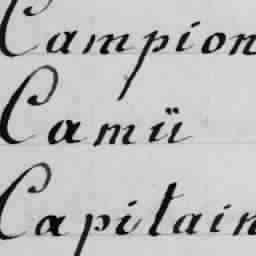 Campion
Camü
Capitain